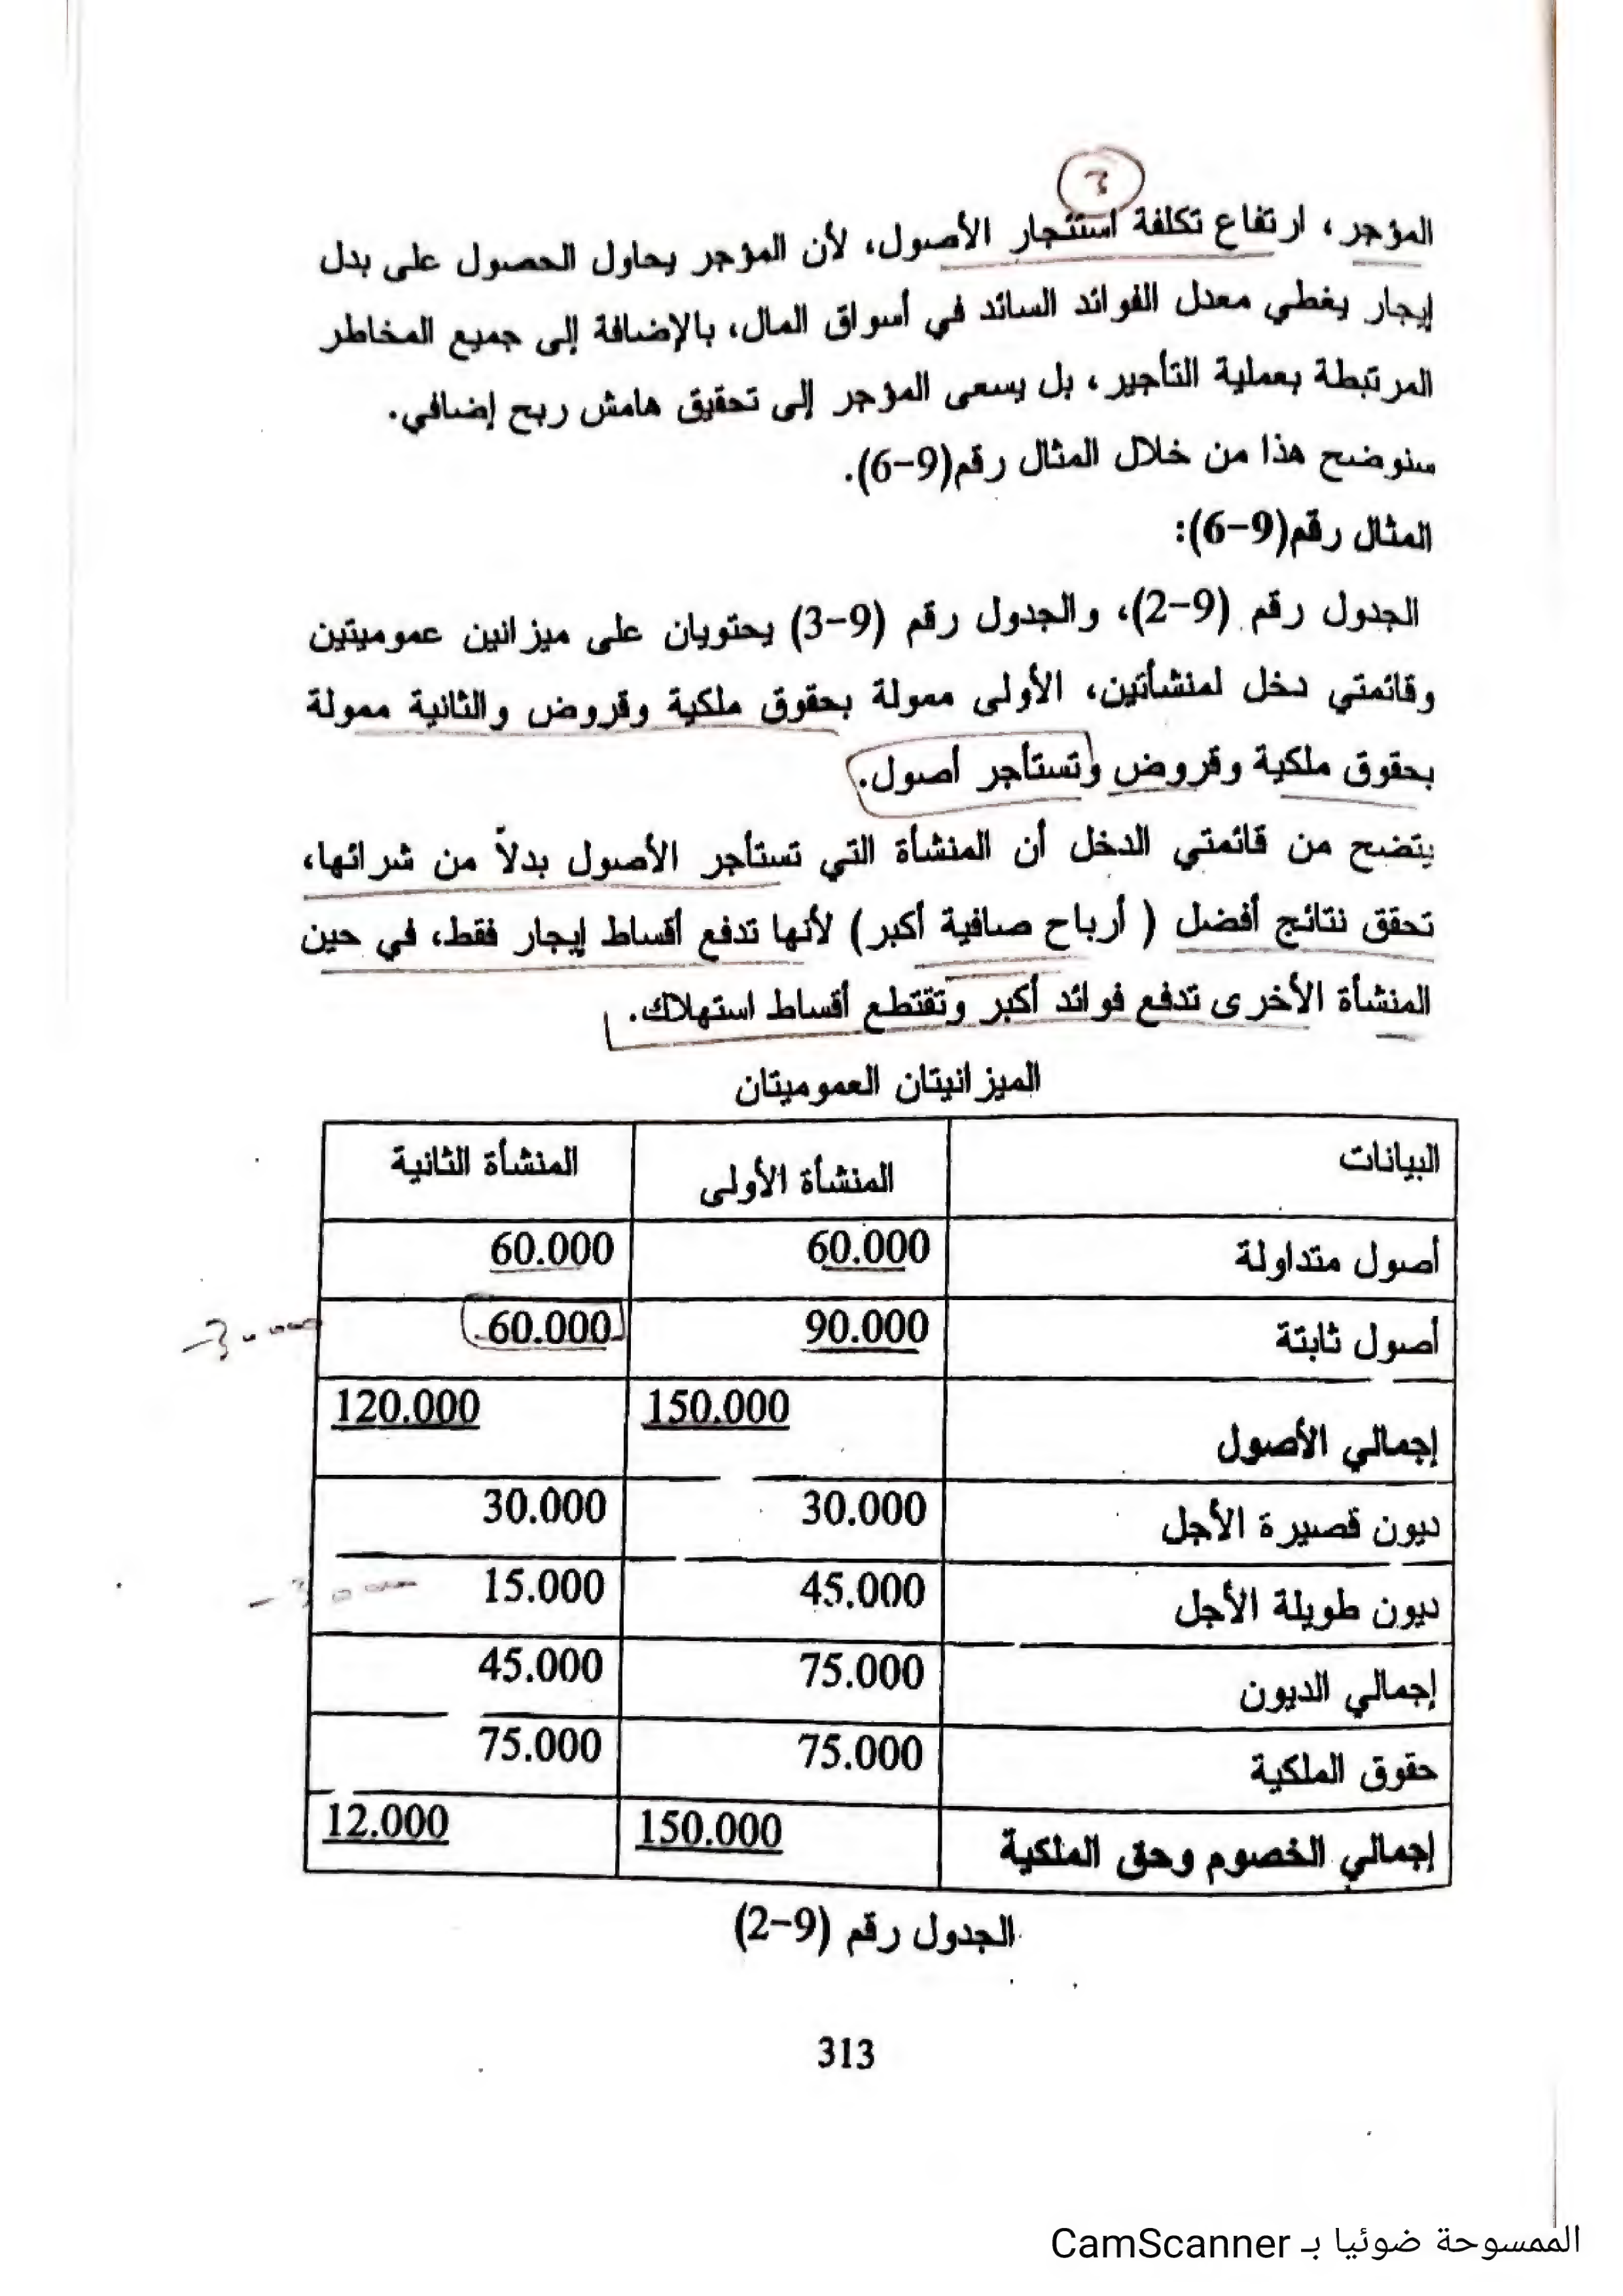 المؤجر، ارتفاع تكلفة استئجار الأصول، لأن المؤجر يحاول الحصول على بدل
إيجار يغطي معدل الفوائد السائد في أسواق المال، بالإضافة إلى جميع المخاطر
المرتبطة بعملية التأجير، بل يسعى المؤجر إلى تحقيق هامش ربح إضافي.
سنوضح هذا من خلال المثال رقم(9-6).
المثال رقم(9-6):
الجدول رقم (9-2)، والجدول رقم (9-3) يحتويان على ميزانين عموميتين
وقائمتي دخل لمنشأتين، الأولى ممولة بحقوق ملكية وقروض والثانية ممولة
بحقوق ملكية وقروض وتستأجر أصول.
يتضح من قائمتي الدخل أن المنشأة التي تستأجر الأصول بدلاً من شرائها،
تحقق نتائج أفضل ( أرباح صافية أكبر) لأنها تدفع أقساط إيجار فقط، في حين
المنشأة الأخرى تدفع فوائد أكبر وتقتطع أقساط استهلاك.
الميزانيتان العموميتان
البيانات المنشأة الأولى المنشأة الثانية
أصول متداولة 60.000 60.000
أصول ثابتة 90.000 60.000
إجمالي الأصول 150.000 120.000
ديون قصيرة الأجل 30.000 30.000
ديون طويلة الأجل 45.000 15.000
إجمالي الديون 75.000 45.000
حقوق الملكية 75.000 75.000
إجمالي الخصوم وحق الملكية 150.000 12.000
الجدول رقم (9-2)
313
الممسوحة ضوئيا بـ CamScanner